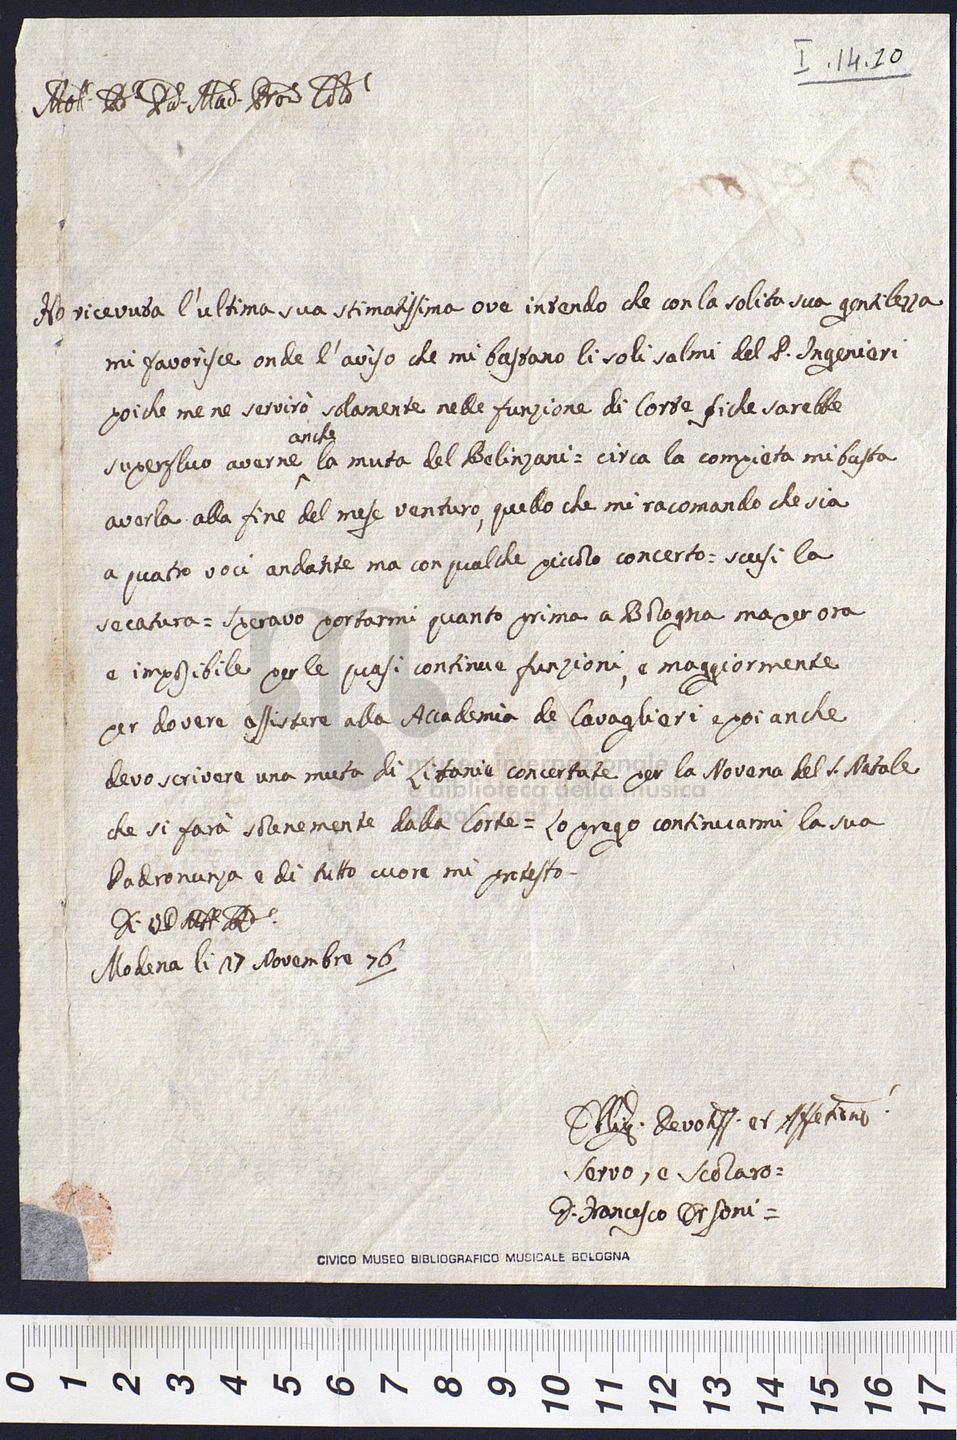 I.14.20
Molt. Rdo Pad. Mad. Pron Colo
Ho ricevuta l'ultima sua stimatissima ove intendo che con la solita sua gentilezza
mi favorisce onde l'aviso che mi bastano li soli salmi del P. Ingenieri
poiche me ne servirò solamente nelle funzione di Corte siche sarebbe
superfluo averne anche la muta del Belinzani= circa la compieta mi basta
averla alla fine del mese venturo, quello che mi racomando che sia
a quatro voci andante ma con qualche piccolo concerto= scusi la
secatura= speravo portarmi quanto prima a Bologna ma per ora
e impossibile per le quasi continue funzioni, e maggiormente
per dovere assistere alla Accademia de Cavaglieri e poi anche
devo scrivere una muta di Litanie concertate per la Novena del S. Natale
che si farà solenemente dalla Corte= Lo prego continuarmi la sua
Padronanza e di tutto cuore mi protesto-
Modena li 17 Novembre 76
Obblig. Devotiss. et Affetionmo
servo, e Scolaro=
D. Francesco Orsoni=
museo internazionale
e biblioteca della musica
di bologna
CIVICO MUSEO BIBLIOGRAFICO MUSICALE BOLOGNA
0 1 2 3 4 5 6 7 8 9 10 11 12 13 14 15 16 17